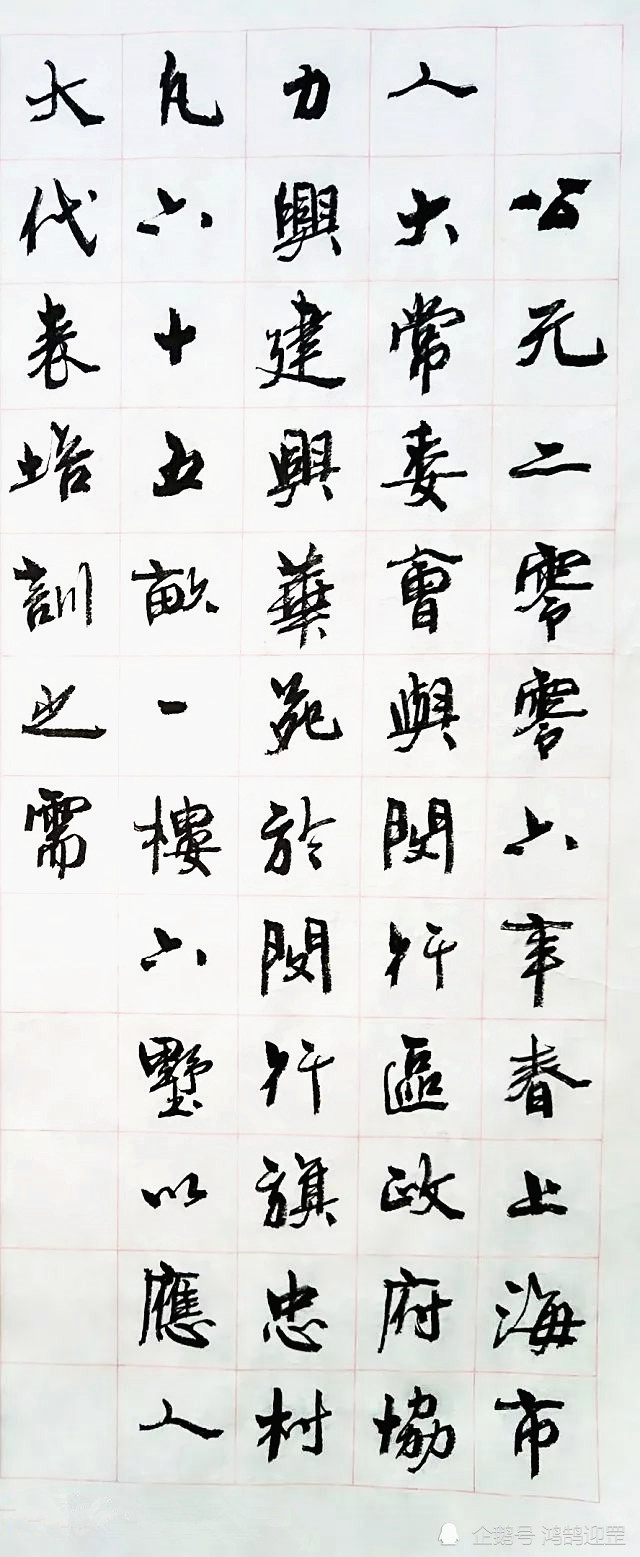 公元二零零六年春上海市
人大常委會與閔行區政府協
力興建興華苑於閔行旗忠村
凡六十五畝一樓六墅以應人
大代表培訓之需
企鹅号 鸿鹄迎罡